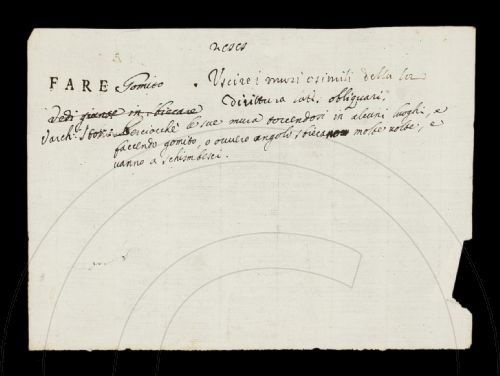 FARE Gomito. Uscire i muri e simili della lor
dirittura lat. obliquari.
Vedi giante in biecare
Varch. Stor. Perciocchè le sue mura torcendosi in alcuni luoghi, e
facendo gomito, o ovvero angolo, biecano molte volte, e
vanno a schimbesci.